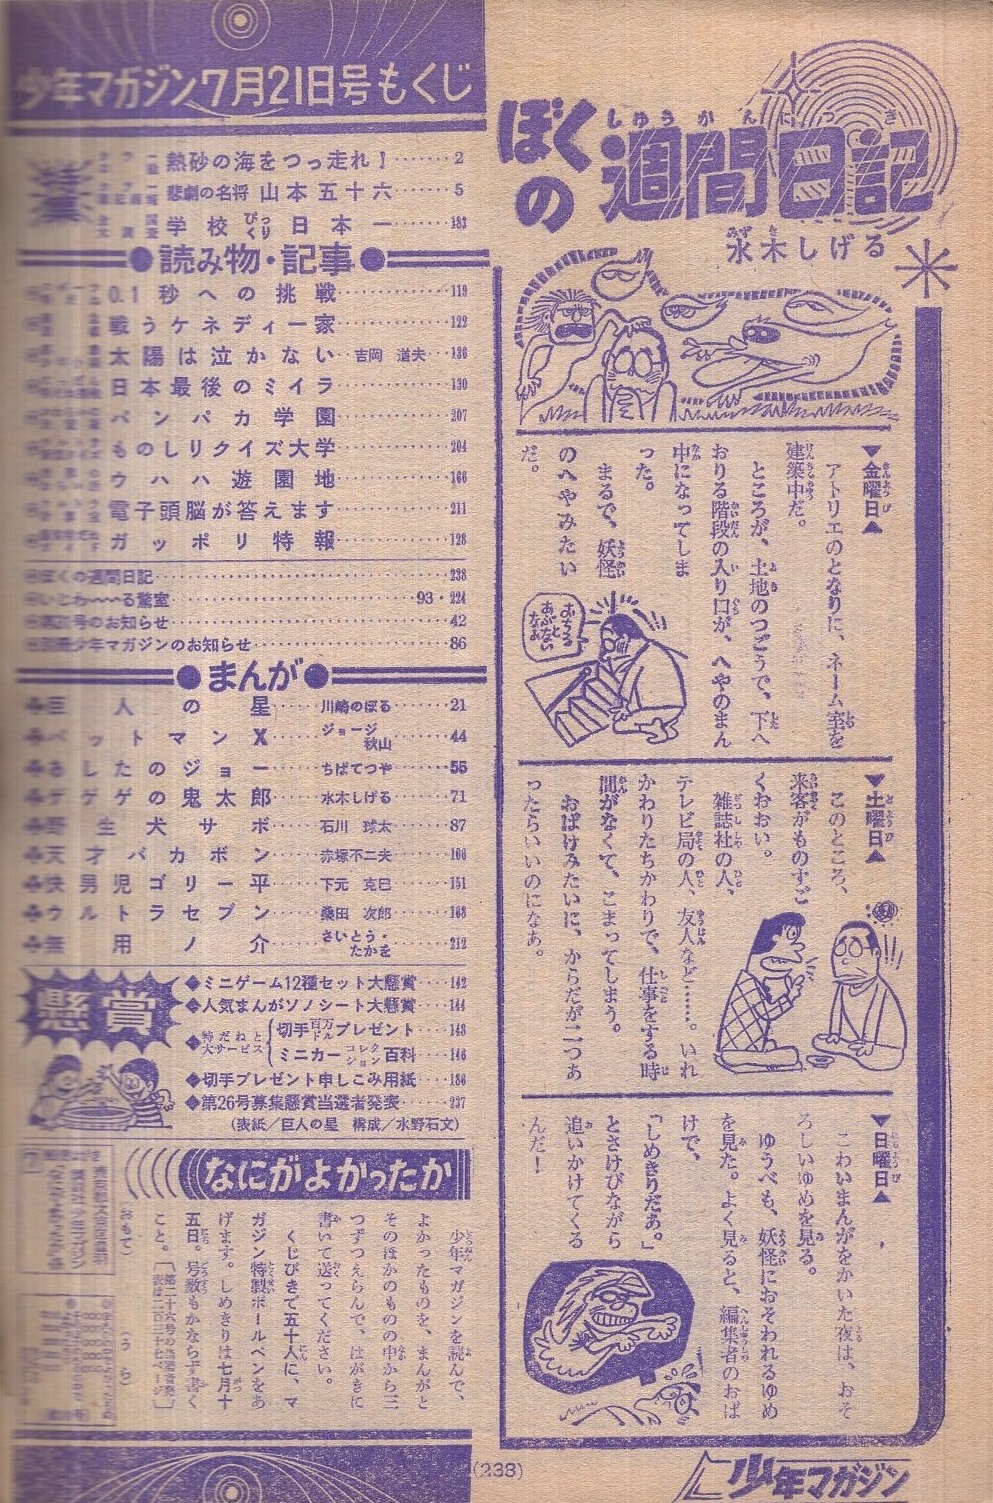 少年マガジン7月21日号もくじ
特集
熱砂の海をつっ走れ！……2
悲劇の名将 山本五十六……5
学校びっくり日本一……183
●読み物・記事●
0.1秒への挑戦……119
戦うケネディー家……122
太陽は泣かない…吉岡 道夫…136
日本最後のミイラ……130
パンパカ学園……207
ものしりクイズ大学……204
ウハハ遊園地……166
電子頭脳が答えます……211
ガッポリ特報……128
ぼくの週間日記……238
いじわ〜〜る驚室……93・224
のお知らせ……42
別冊少年マガジンのお知らせ……86
●まんが●
巨人の星……川崎のぼる……21
パットマンX……ジョージ秋山……44
あしたのジョー……ちばてつや……55
ゲゲゲの鬼太郎……水木しげる……71
野生犬サボ……石川 球太……87
天才バカボン……赤塚不二夫……106
快男児ゴリー平……下元 克巳……151
ウルトラセブン……桑田 次郎……168
無用ノ介……さいとう・たかを……212
懸賞
◆ミニゲーム12種セット大懸賞……142
◆人気まんがソノシート大懸賞……144
◆特だねと大サービス
切手百万ドルプレゼント……148
ミニカーコレクション百科……146
◆切手プレゼント申しこみ用紙……186
◆第26号募集懸賞当選者発表……237
(表紙／巨人の星 構成／水野石文)
なにがよかったか
少年マガジンを読んで、
よかったものを、まんがと
そのほかのものの中から三
つずつえらんで、はがきに
書いて送ってください。
くじびきで五十人に、マ
ガジン特製ボールペンをあ
げます。しめきりは七月十
五日。号数もかならず書く
こと。〔第二十六号の当選者発
表は二百三十七ページ〕
(おもて)
(うら)
ぼくの週間日記
しゅうかんにっき
水木しげる
▼金曜日▲
アトリエのとなりに、ネーム室を
建築中だ。
ところが、土地のつごうで、下へ
おりる階段の入り口が、へやのまん
中になってしま
った。
まるで、妖怪
のへやみたい
だ。
おちるとあぶないなあ
▼土曜日▲
このところ、
来客がものすご
くおおい。
雑誌社の人、
テレビ局の人、友人など……。いれ
かわりたちかわりで、仕事をする時
間がなくて、こまってしまう。
おばけみたいに、からだが二つあ
ったらいいのになあ。
▼日曜日▲
こわいまんがをかいた夜は、おそ
ろしいゆめを見る。
ゆうべも、妖怪におそわれるゆめ
を見た。よく見ると、編集者のおば
けで、
「しめきりだぁ。」
とさけびながら
追いかけてくる
んだ！
(238)
少年マガジン